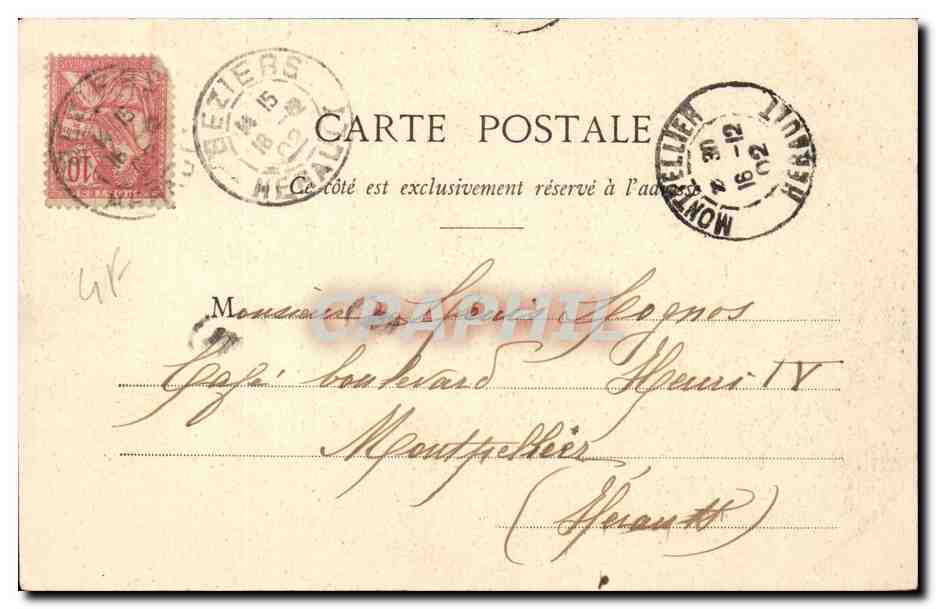 BEZIERS
15
16 -12
02
HERAULT
MONTPELLIER
7 30
16 -12
02
HERAULT
10
CARTE POSTALE
Ce côté est exclusivement réservé à l'adresse
4F
CPAPHIL
Monsieur Louis Mognos
Café boulevard Henri IV
Montpellier
(Hérault)